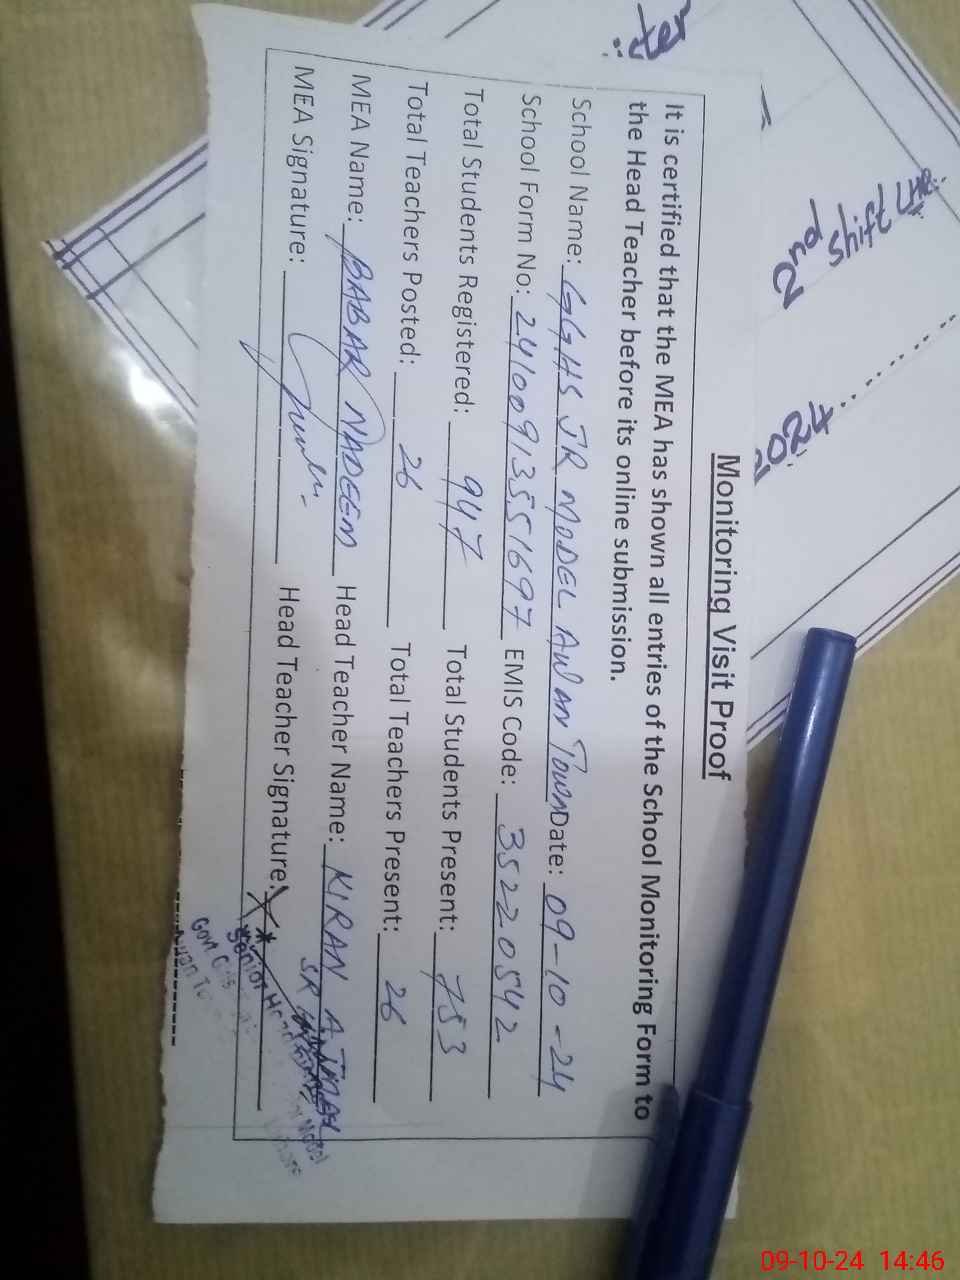 Monitoring Visit Proof
It is certified that the MEA has shown all entries of the School Monitoring Form to
the Head Teacher before its online submission.
School Name: GGHS JR MODEL AWAN TOWN Date: 09-10-24
School Form No: 24100913551697 EMIS Code: 35220542
Total Students Registered: 947 Total Students Present: 753
Total Teachers Posted: 26 Total Teachers Present: 26
MEA Name: BABAR NADEEM Head Teacher Name: KIRAN
MEA Signature: Head Teacher Signature:
Senior Head
Govt G
Model
2nd
Shift
2024
09-10-24 14:46